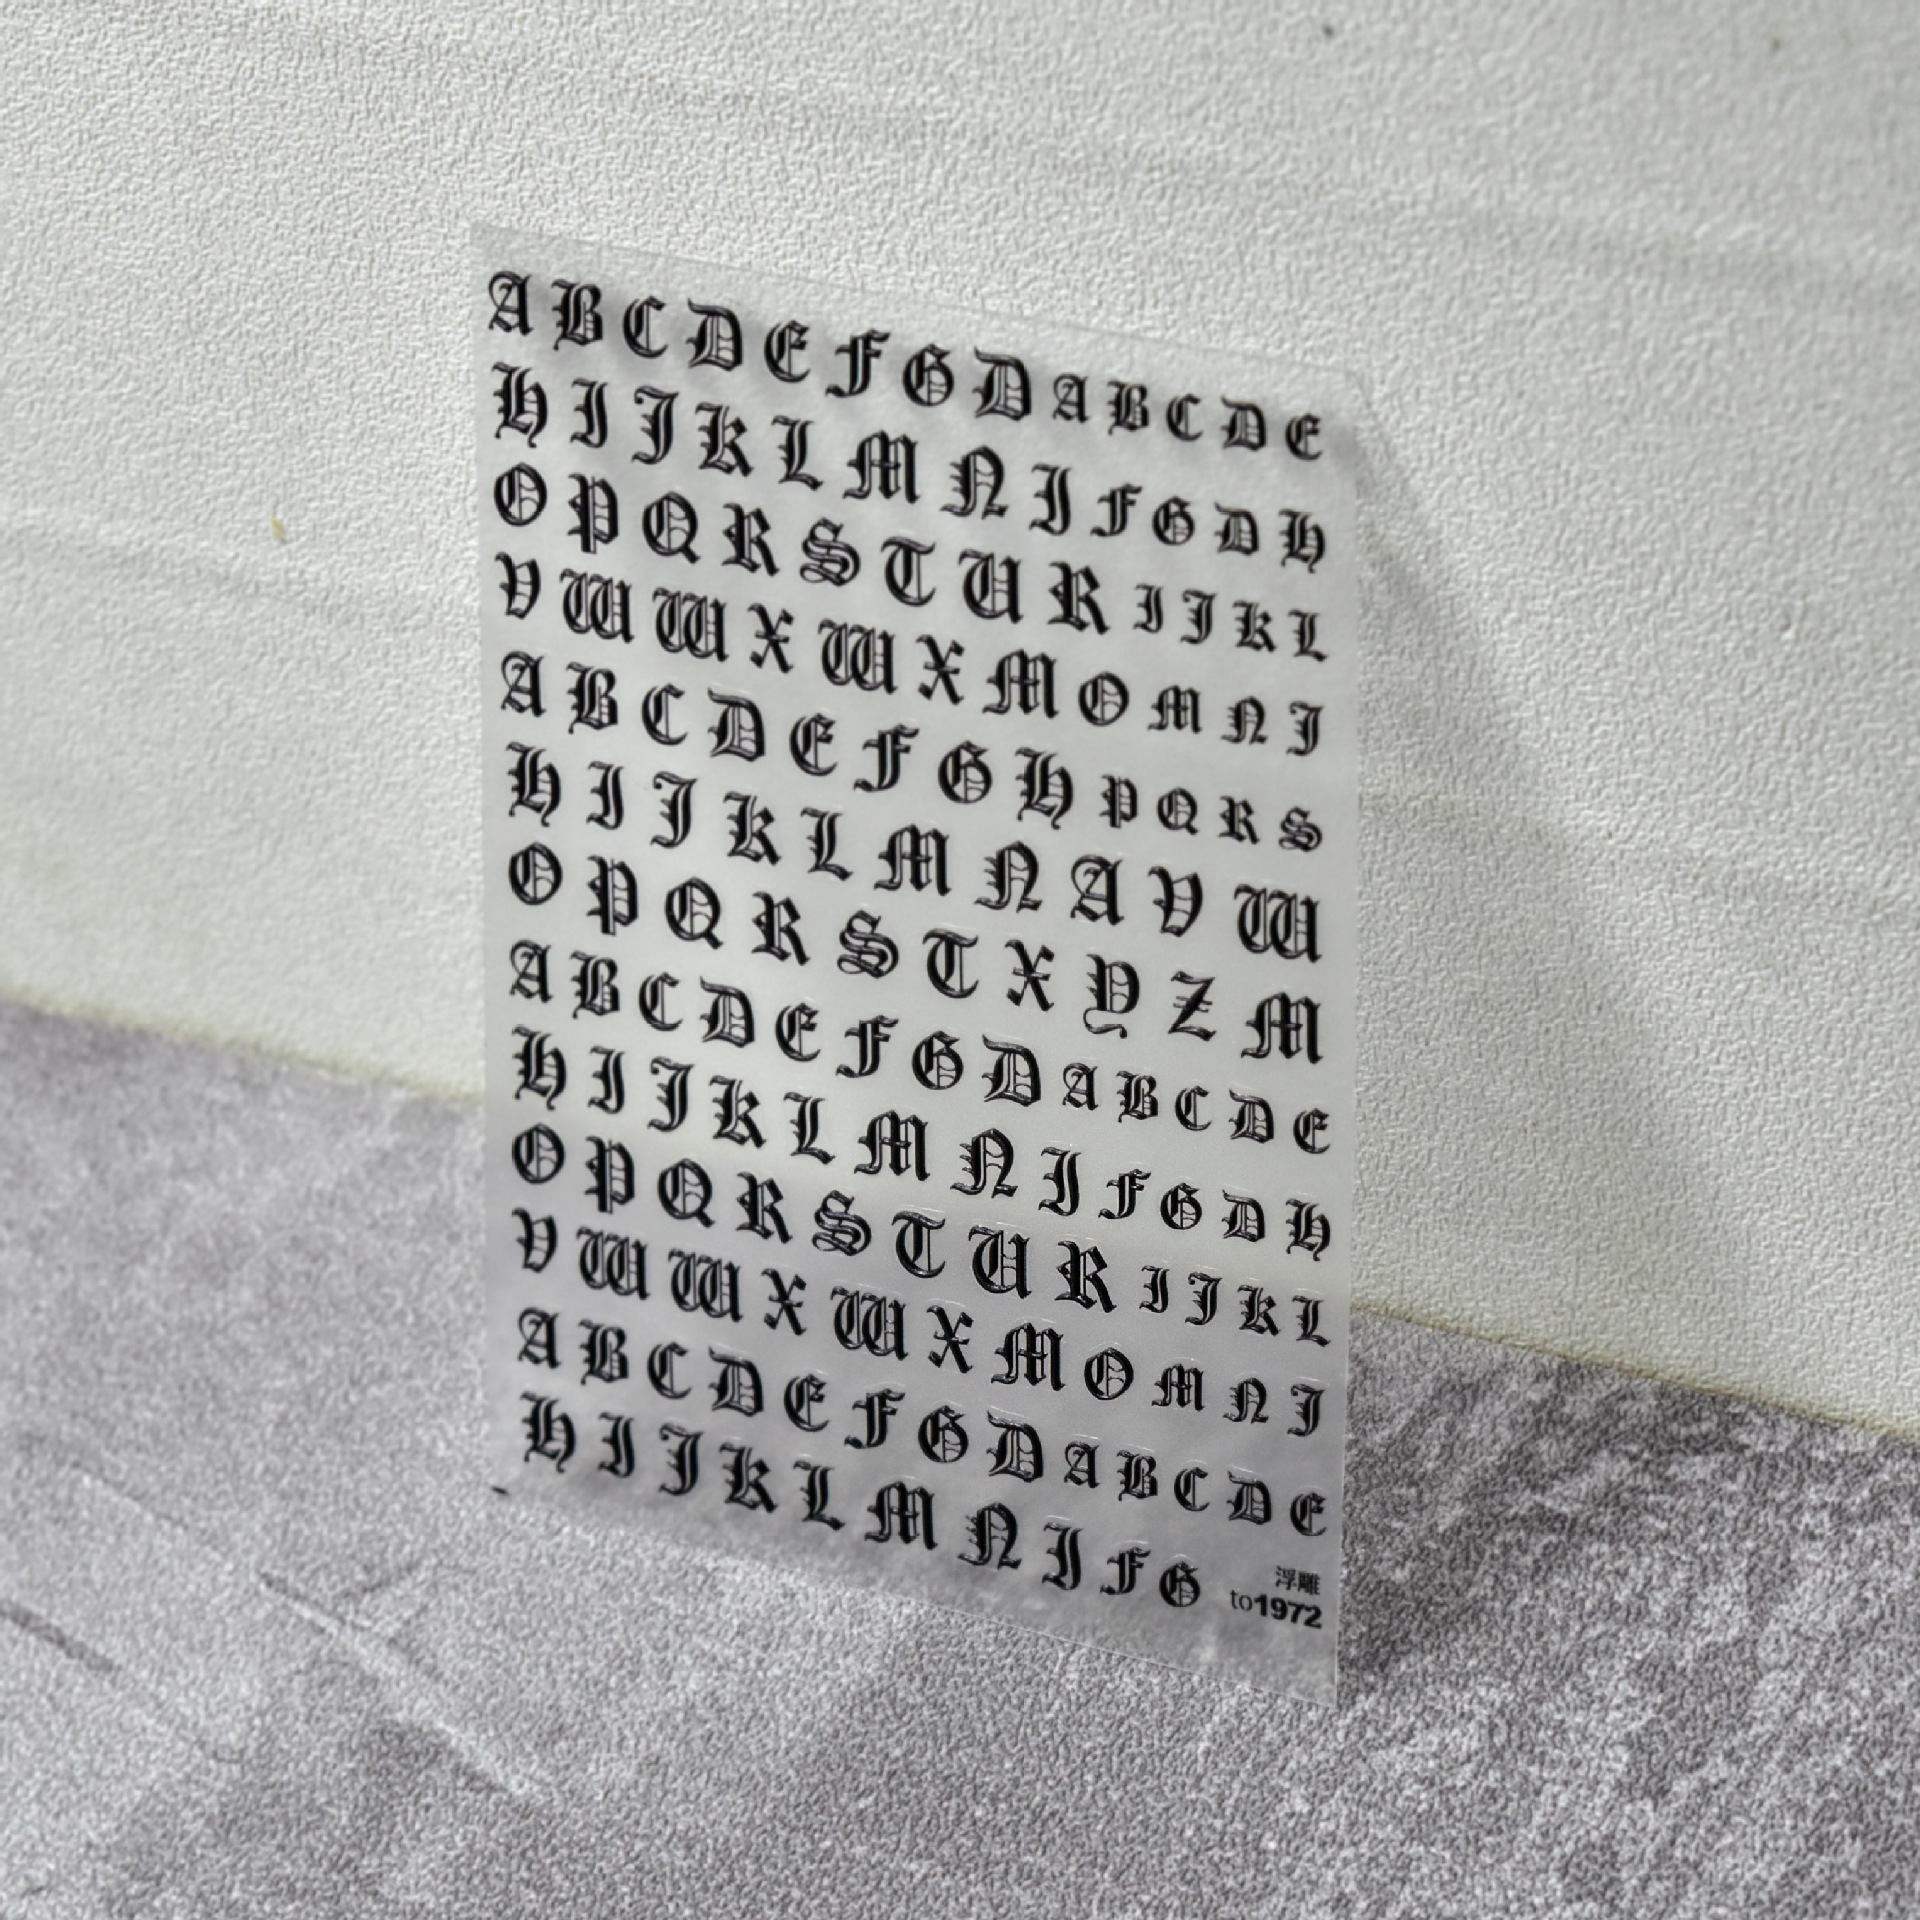 A B C D E F G D A B C D E
H I J K L M N I F G D H
O P Q R S T U R I J K L
V W W X W X M O M N J
A B C D E F G H P Q R S
H I J K L M N A V W
O P Q R S T X Y Z M
A B C D E F G D A B C D E
H I J K L M N I F G D H
O P Q R S T U R I J K L
V W W X W X M O M N J
A B C D E F G D A B C D E
H I J K L M N I F G
浮雕
to1972